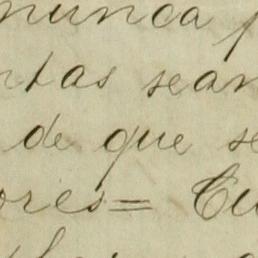 nunca
ntas sean
de que se
ores= Cu